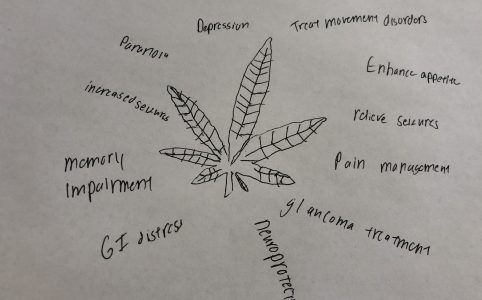 Depression
Treat movement disorders
Paranoia
Enhance appetite
increased seizures
relieve seizures
memory
Impairment
Pain management
glaucoma treatment
GI distress